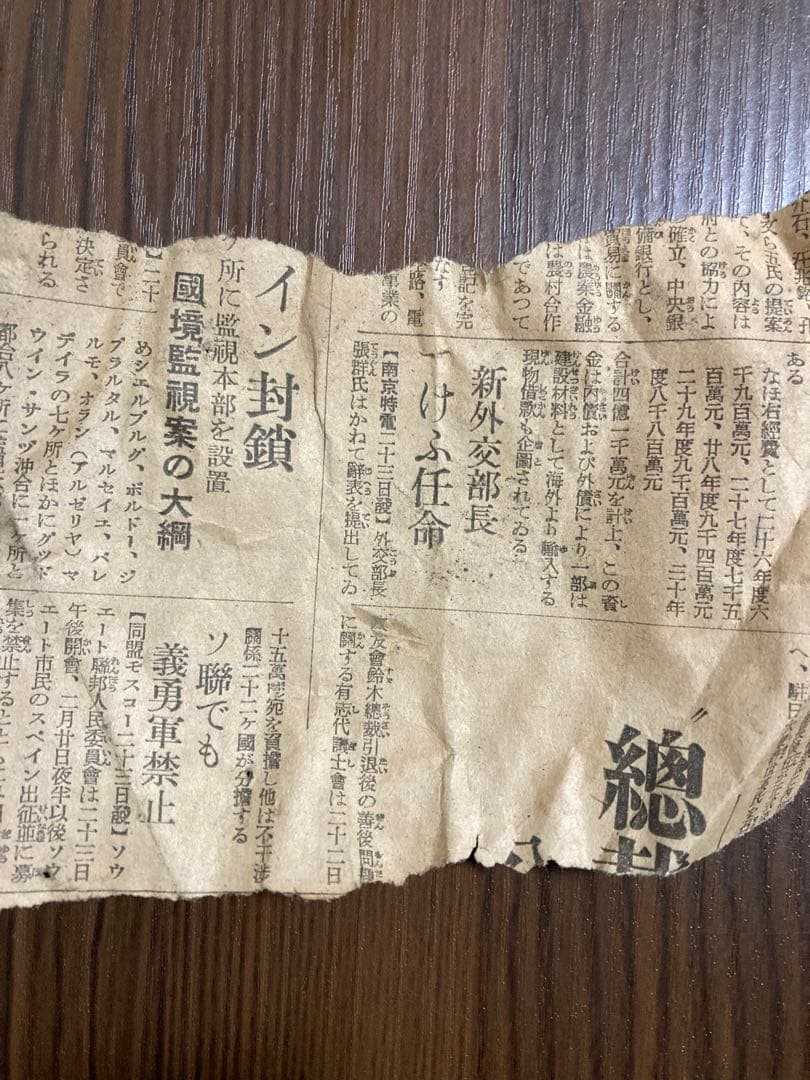 介石、
女ら五氏の提案
、その内容は
府との協力によ
確立、中央銀
備銀行とし、
貿易に關する
は農業金融
は農村合作
であつて
記を完
なす
路、電
事業の
ある
なほ右經費として二十六年度六
千九百萬元、二十七年度七千五
百萬元、廿八年度九千四百萬元
二十九年度九千百萬元、三十年
度八千八百萬元
合計四億一千萬元を計上、この資
金は内債および外債により一部は
建設材料として海外より輸入する
現物借款も企圖されてゐる
新外交部長
けふ任命
【南京特電二十三日發】外交部長
張群氏はかねて辭表を提出してゐ
イン封鎖
ケ所に監視本部を設置
國境監視案の大綱
】二十
員會で
決定さ
られる
めシエルブルグ、ボルドー、ジ
ブラルタル、マルセイエ、パレ
ルモ、オラン（アルゼリヤ）マ
デイラの七ケ所とほかにグッド
ウイン・サンヅ沖合に一ケ所と
都合八ケ所に
へ、
總裁
政友會鈴木總裁引退後の善後問題
に關する有志代議士會は二十二日
十五萬磅宛を負擔し他は不干渉
關係二十二ケ國が分擔する
ソ聯でも
義勇軍禁止
【同盟モスコー二十三日發】ソウ
エート聯邦人民委員會は二十三日
午後開會、二月廿日夜半以後ソウ
エート市民のスペイン出征並に募
集を禁止する